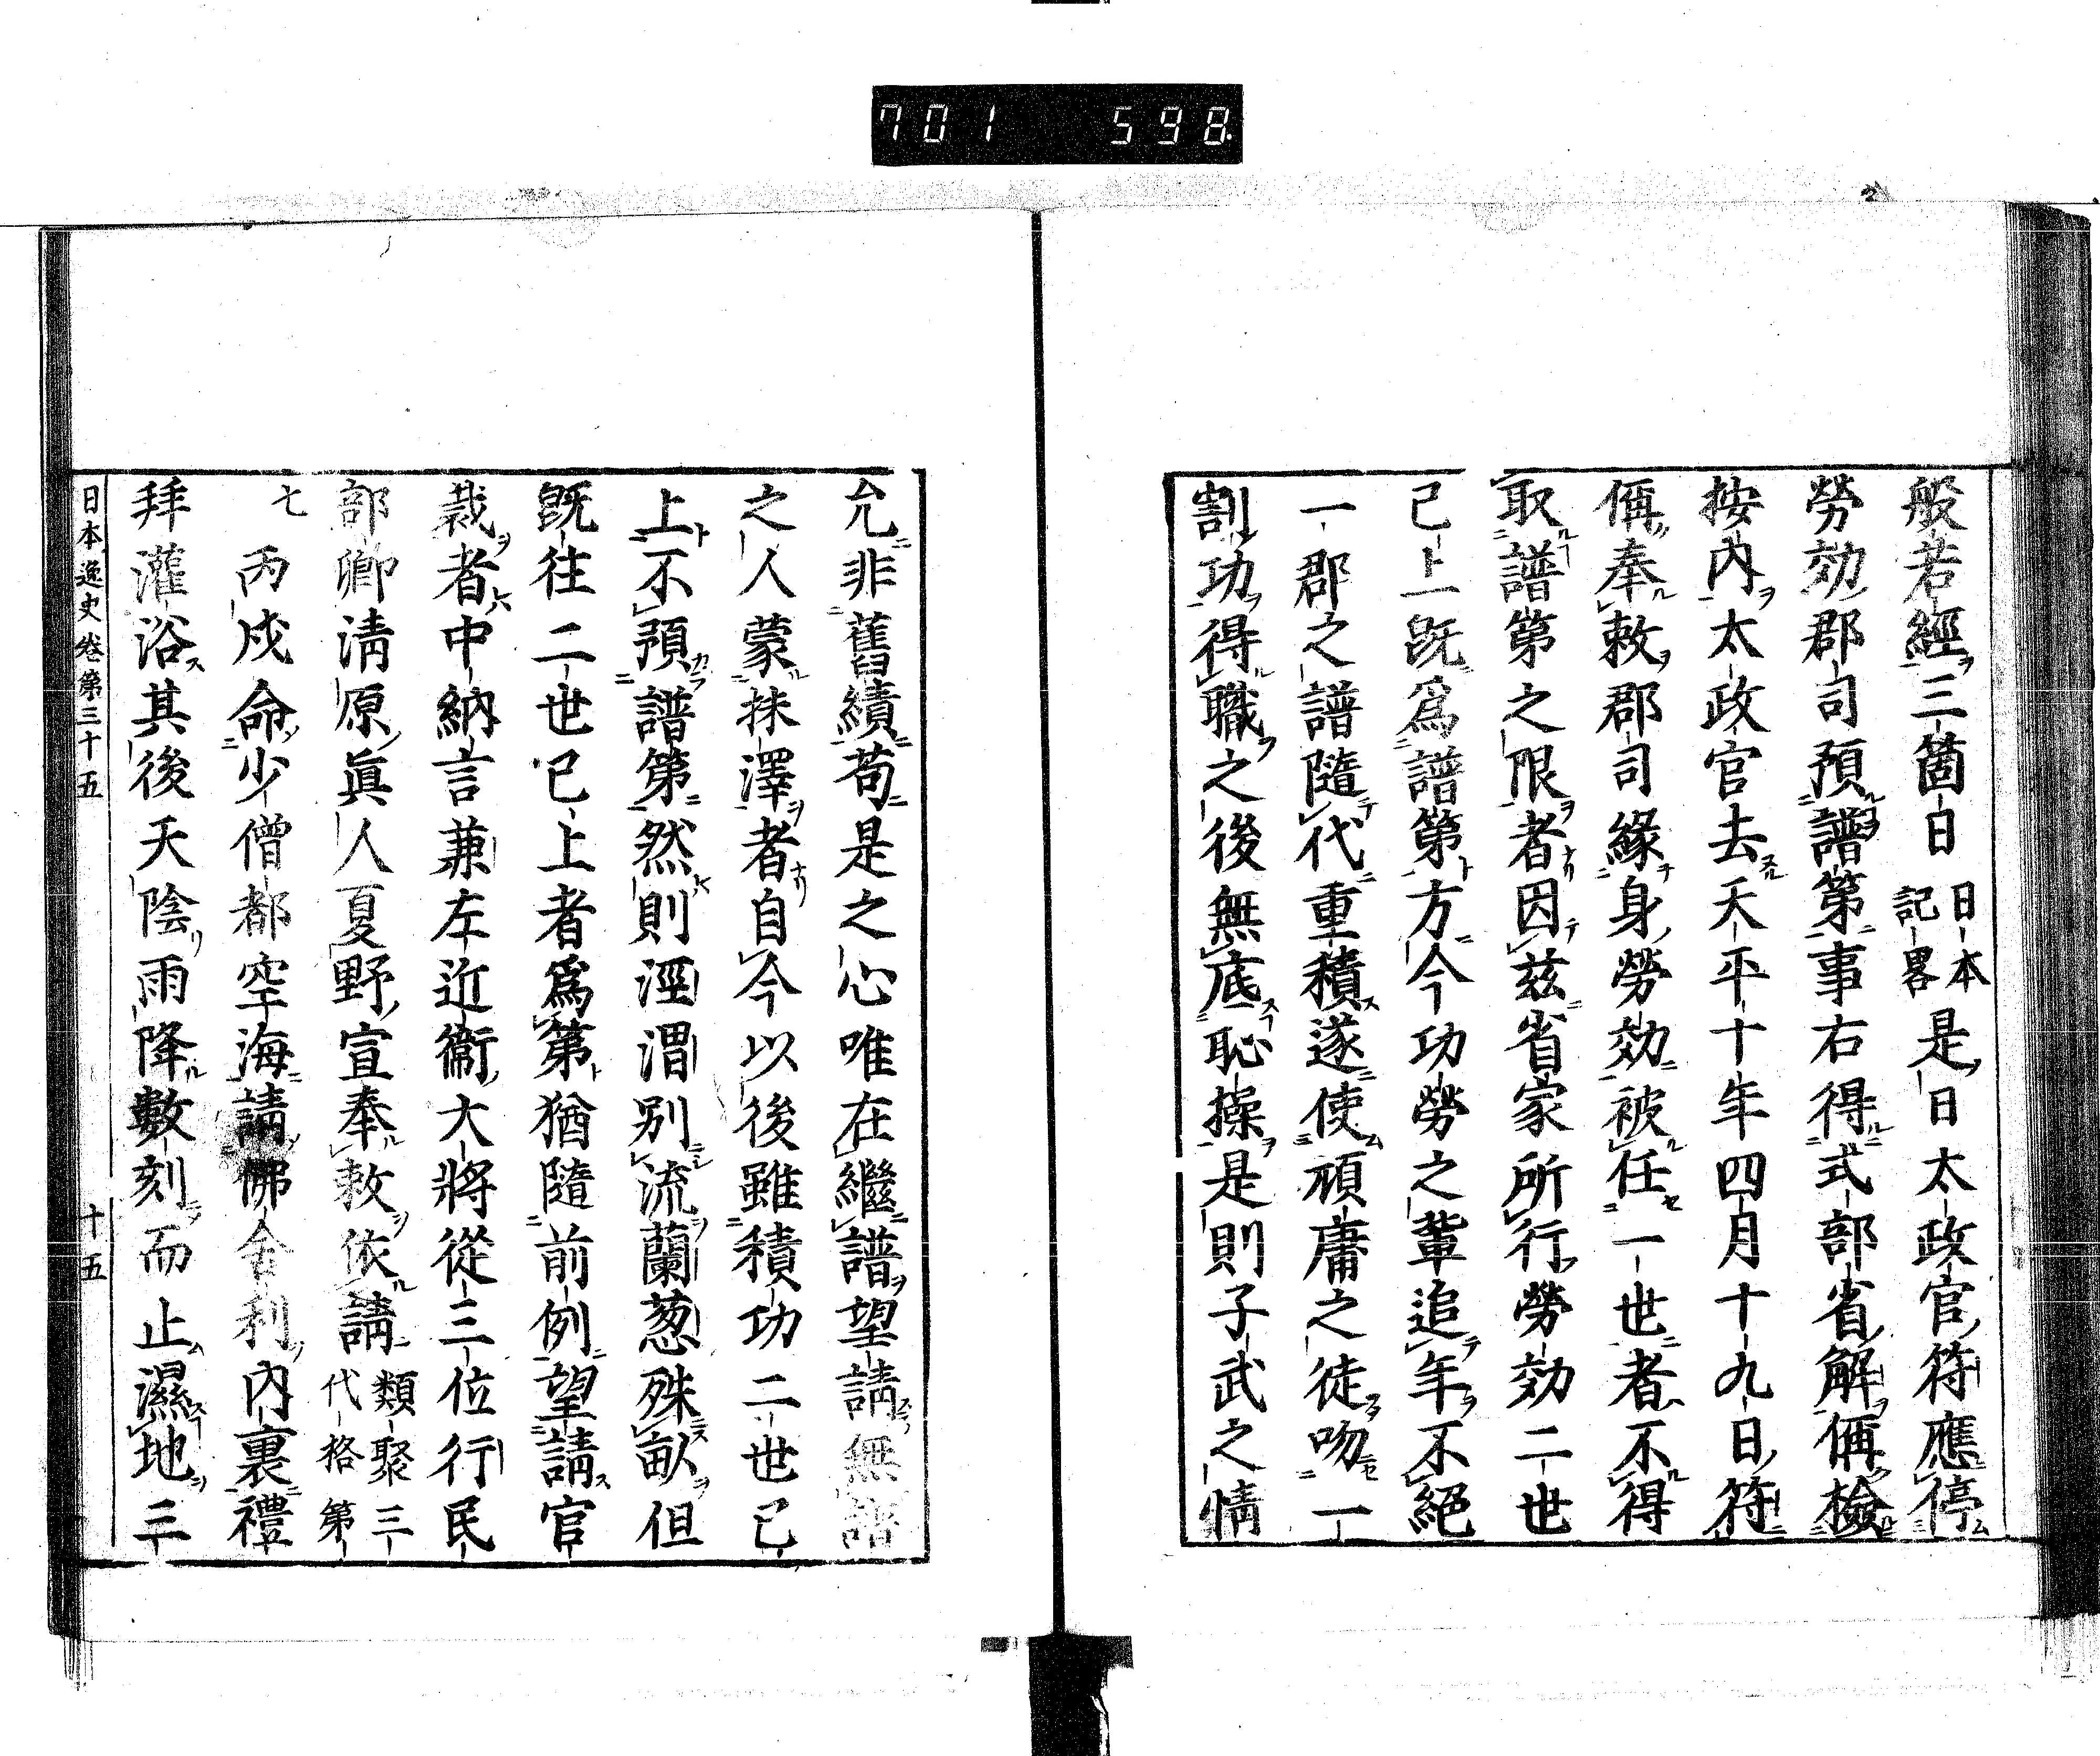 701 598
般若經三箇日日本記畧是日太政官符應停
勞効郡司預譜第事右得式部省解偁檢
按內太政官去天平十年四月十九日符
偁奉敕郡司緣身勞効被任一世者不得
取譜第之限者因茲省家所行勞効二世
已上既爲譜第方今功勞之輩追年不絕
一郡之譜隨代重積遂使頑庸之徒吻一
割功得職之後無底恥操是則子武之情
允非舊績苟是之心唯在繼譜望請無譜
之人蒙抹澤者自今以後雖積功二世已
上不預譜第然則涇渭別流蘭葱殊畝但
既往二世已上者爲第猶隨前例望請官
裁者中納言兼左近衞大將從三位行民
部卿淸原眞人夏野宣奉敕依請類聚三代格第
七 丙戍命少僧都空海請佛舍利內裏禮
拜灌浴其後天陰雨降數刻而止濕地三
日本逸史卷第三十五 十五